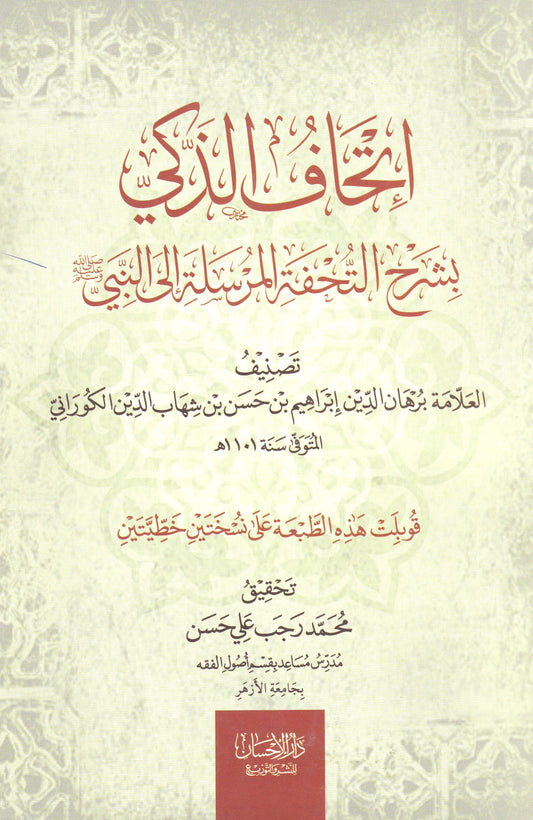 إتحاف الذكي
بشرح التحفة المرسلة إلى النبي ﷺ
تصنيف
العلامة برهان الدين إبراهيم بن حسن بن شهاب الدين الكوراني
المتوفى سنة ١١٠١هـ
قوبلت هذه الطبعة على نسختين خطيتين
تحقيق
محمد رجب علي حسن
مدرس مساعد بقسم أصول الفقه
بجامعة الأزهر
دار الإحسان
للنشر والتوزيع